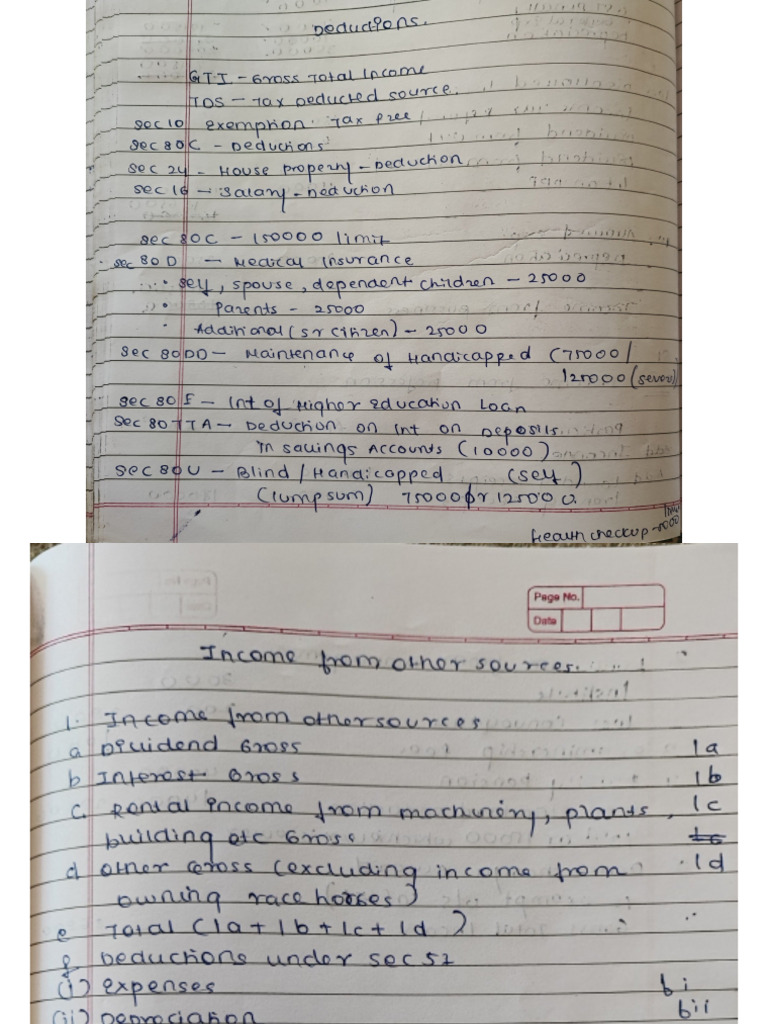 Deductions.
GTI - Gross Total Income
TDS - Tax Deducted Source.
Sec 10 exemption Tax free
Sec 80C - Deductions
Sec 24 - House property - Deduction
Sec 16 - Salary - Deduction
Sec 80C - 150000 limit
Sec 80D - Medical Insurance
Self, spouse, dependent children - 25000
Parents - 25000
Additional (sr citizen) - 25000
Sec 80DD - Maintenance of Handicapped (75000/
125000 (severe)
Sec 80E - Int of Higher Education Loan
Sec 80TTA - Deduction on Int on Deposits
in savings Accounts (10000)
Sec 80U - Blind / Handicapped (self)
(lumpsum) 75000 or 125000.
Health checkup - 5000
Page No.
Date
Income from other sources.
1. Income from other sources
a Dividend Gross 1a
b Interest Gross 1b
c. Rental income from machinery, plants, 1c
building etc Gross
d other Gross (excluding income from 1d
owning race horses)
e Total (1a + 1b + 1c + 1d)
f Deductions under sec 57
(i) expenses bi
(ii) Depreciation bii